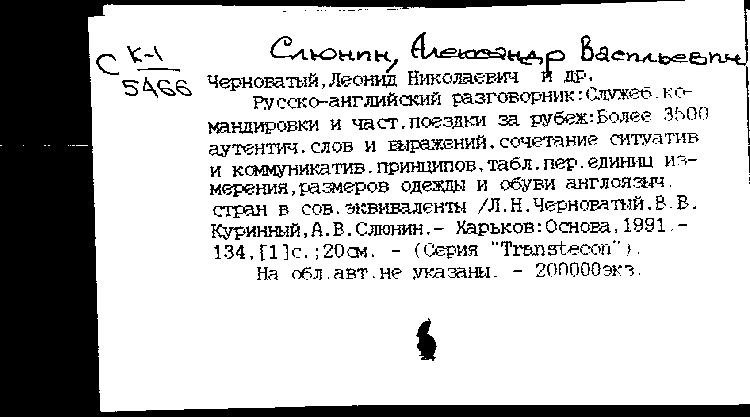 Слюнин, Александр Васильевич
С К-1
5466
Черноватый,Леонид Николаевич и др.
Русско-английский разговорник:Служеб.ко-
мандировки и част.поездки за рубеж:Более 3500
аутентич.слов и выражений.сочетание ситуатив
и коммуникатив.принципов,табл.пер.единиц из-
мерения,размеров одежды и обуви англоязыч.
стран в сов.эквиваленты /Л.Н.Черноватый.В.В.
Куринный,А.В.Слюнин.- Харьков:Основа,1991.-
134,[1]с.;20см. - (Серия "Transtecon").
На обл.авт.не указаны. - 200000экз.